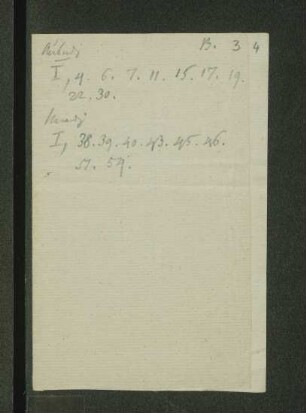 B. 3 4
I, 4. 6. 7. 11. 15. 17. 19.
22. 30.
I, 38. 39. 40. 43. 45. 46.
51. 54.